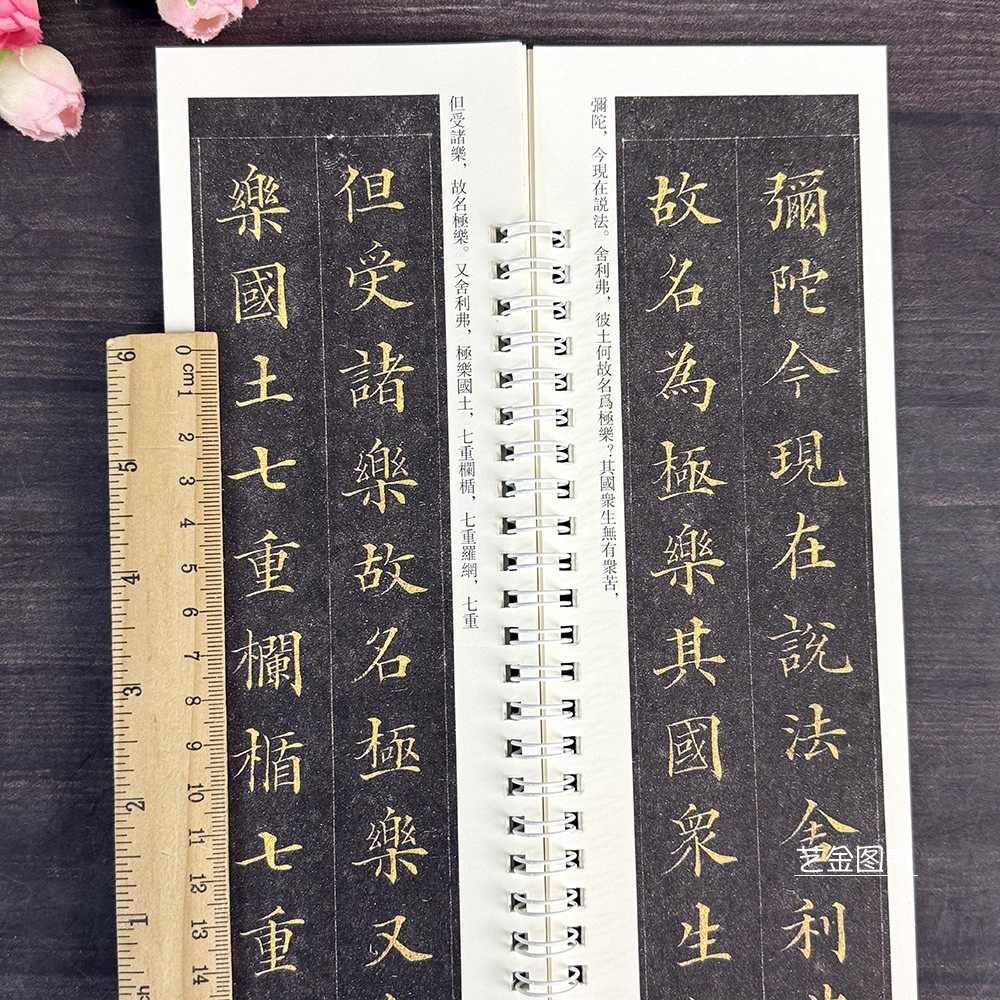 彌陀今現在説法舍利
故名為極樂其國衆生
彌陀，今現在説法。舍利弗，彼土何故名爲極樂？其國衆生無有衆苦，
但受諸樂，故名極樂。又舍利弗，極樂國土，七重欄楯，七重羅網，七重
但受諸樂故名極樂又
樂國土七重欄楯七重
艺金图
0 cm 1 2 3 4 5 6 7 8 9 10 11 12 13 14
6 5 4 3 2 1